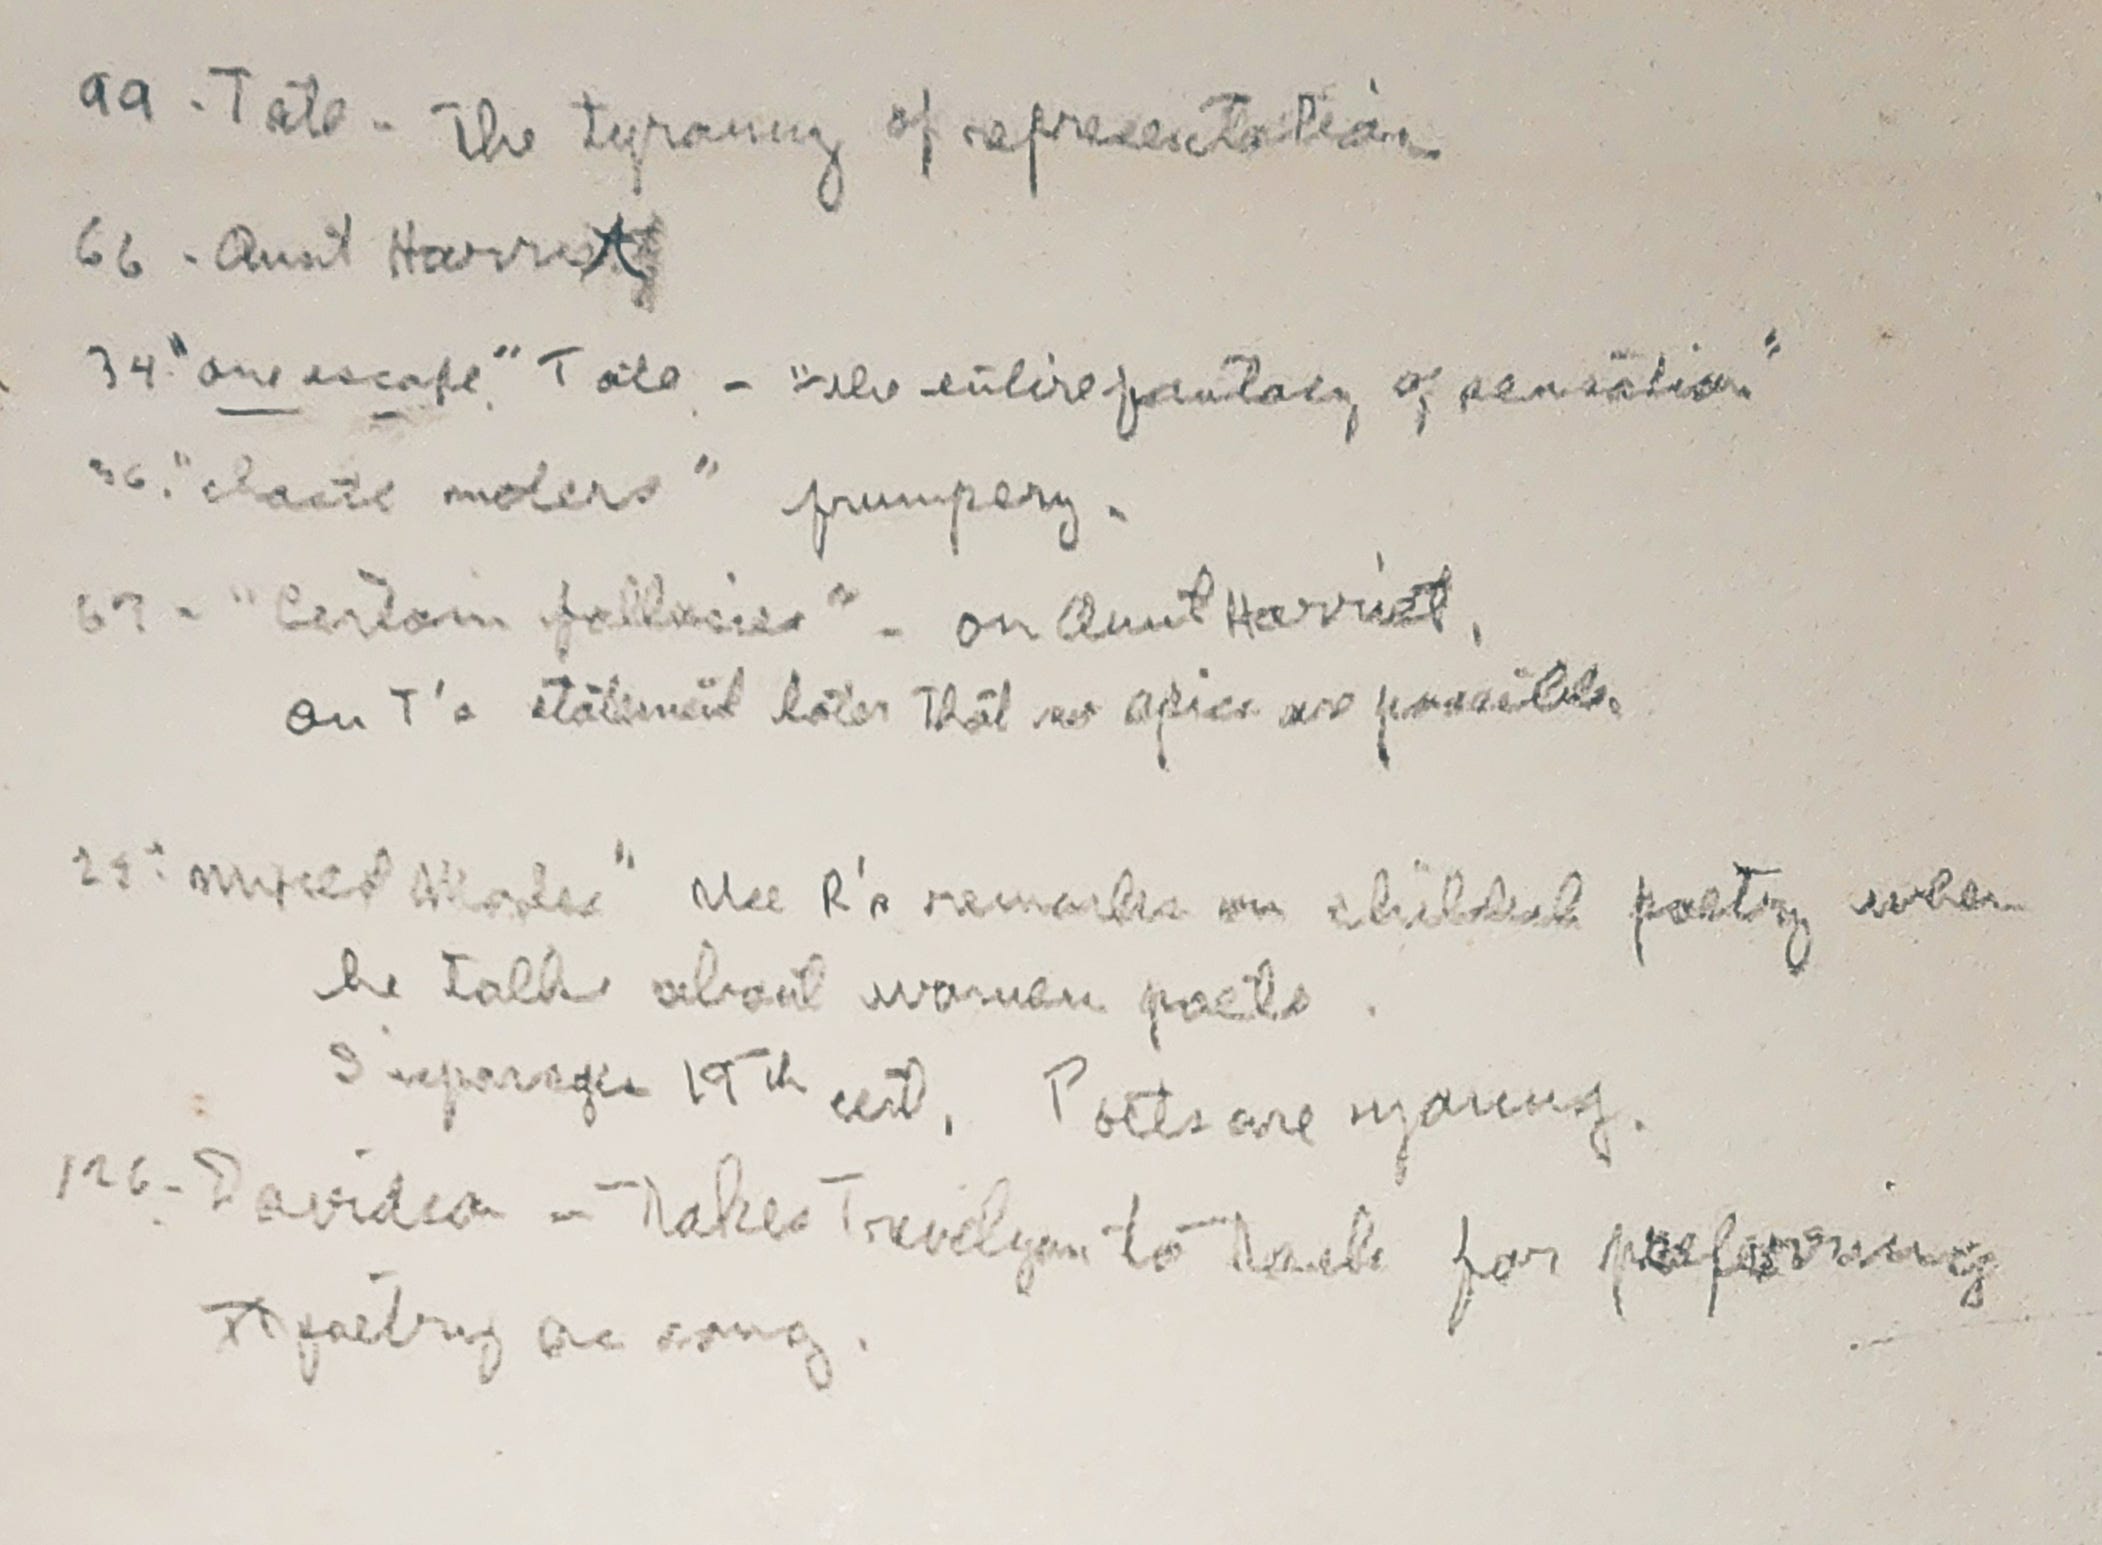 99 - Tate - The tyranny of representation
66 - Aunt Harriet
34. "one escape" Tate - "the entire fantasy of sensation"
36. " " frumpery.
67 - "Certain fallacies" - on Aunt Harriet,
on T's statement later that no epics are possible.
25: "Mixed Modes" Use R's remarks on childish poetry when
he talks about women poets.
19th cent. Poets are young.
126 - Davidson - Takes Trevelyan to task for preferring
poetry as song.